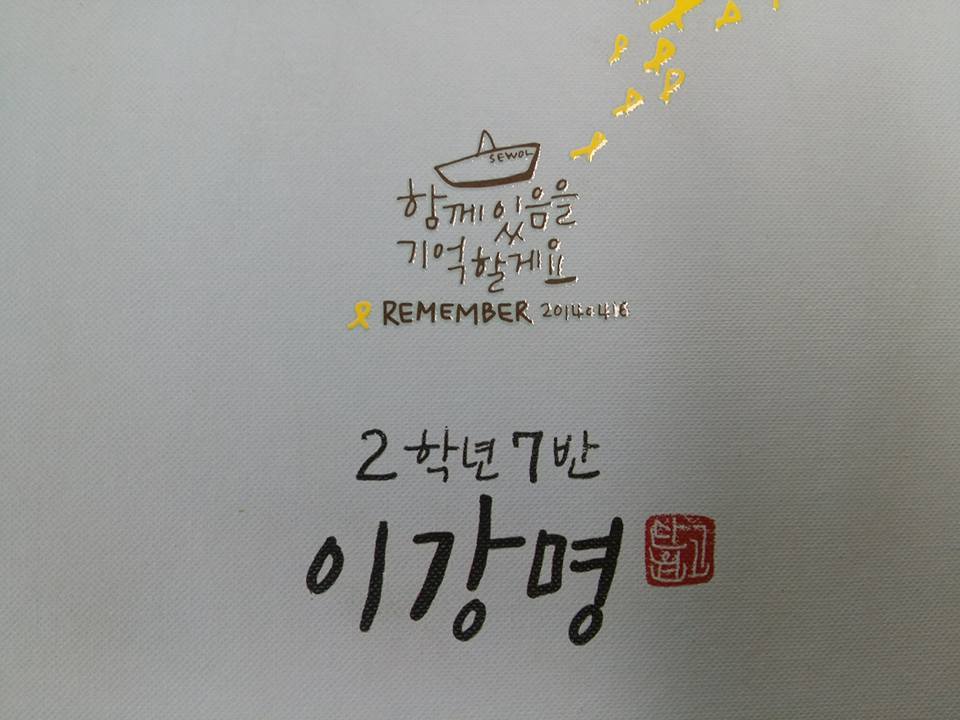 SEWOL
함께있음을
기억할게요
REMEMBER 2014.04.16
2학년7반
이강명